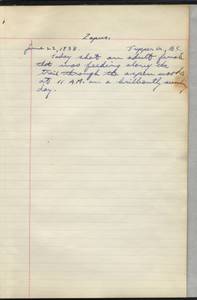 Zapus.
June 22, 1938. Tupper Cr, B.C.
Today shot an adult female
that was feeding along the
trail through the aspen woods
at 11 A.M. on a brilliantly sunny
day.